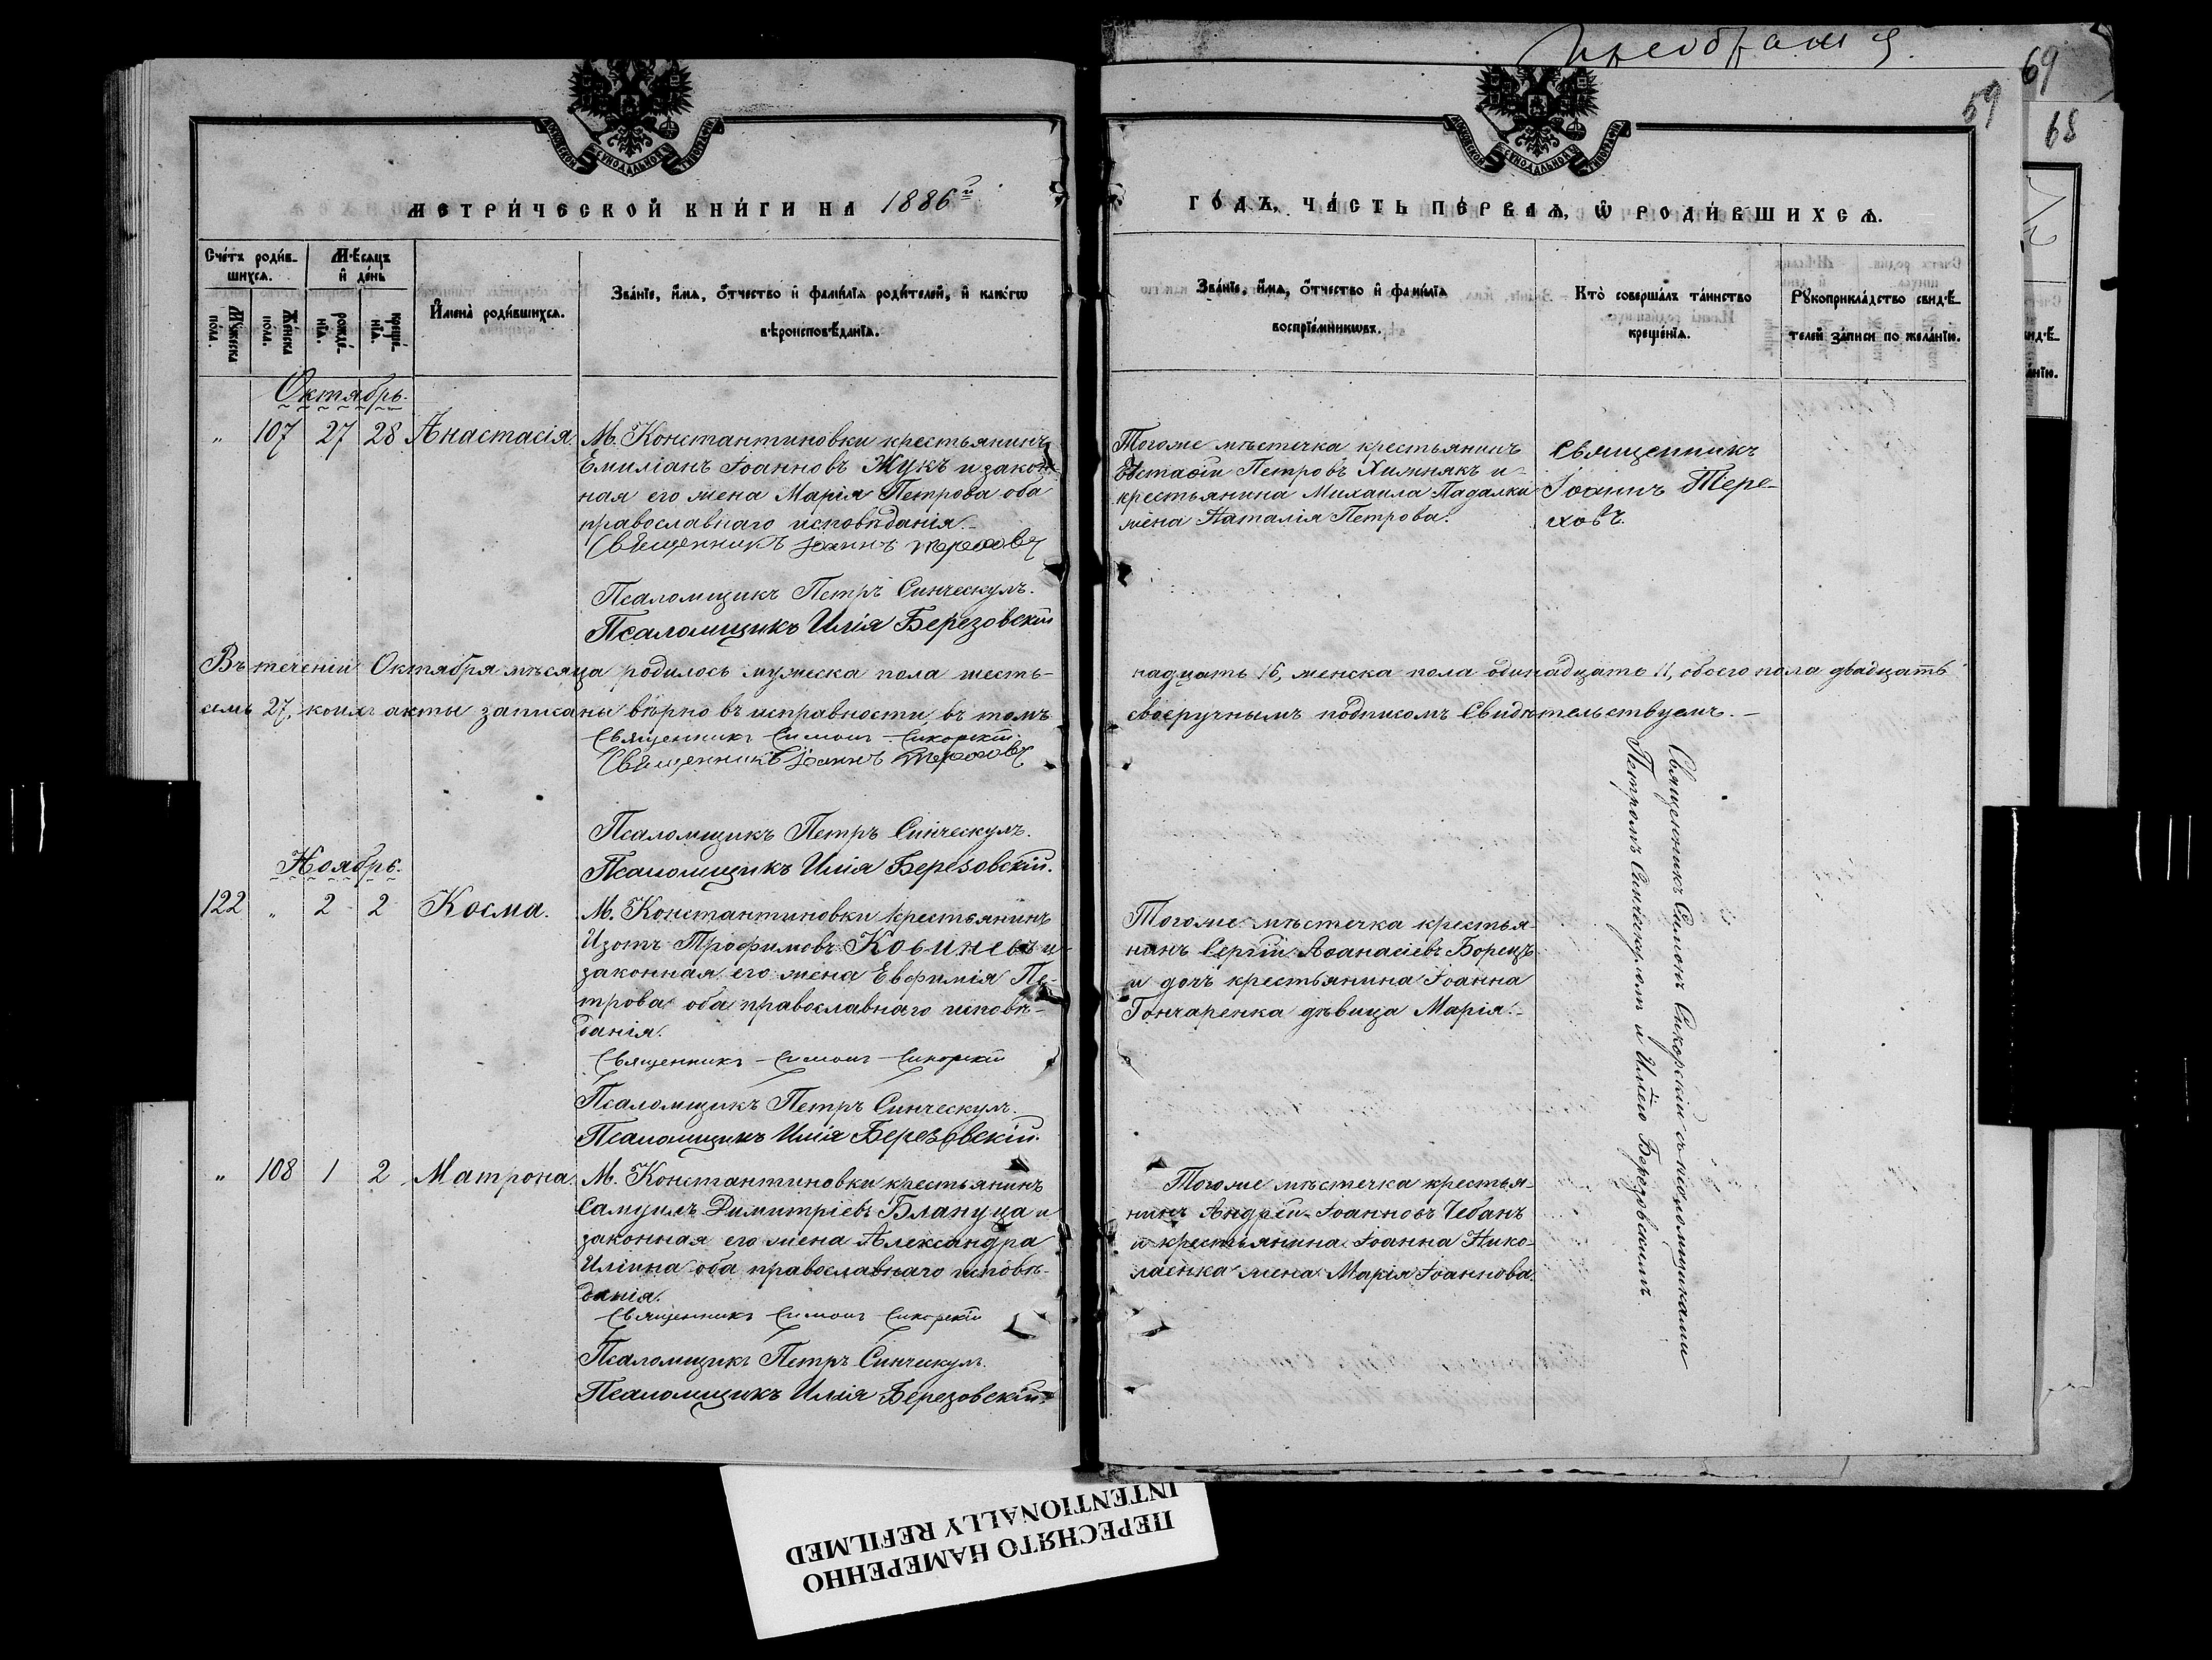 Преображ
69
59
68
МОСКОВСКОЙ СѴНОДАЛЬНОЙ ТИПОГРАФІИ
МОСКОВСКОЙ СѴНОДАЛЬНОЙ ТИПОГРАФІИ
МЕТРИ́ЧЕСКОЙ КНИ́ГИ НА 1886й
ГО́ДЪ, ЧА́СТЬ ПЕ́РВАѦ, Ѡ РОДИ́ВШИХСѦ.
Сче́тъ роди́в-
шихсѧ.
Мѣ́сяцъ
и҆ де́нь
Мꙋ́жеска
по́ла.
Же́нска
по́ла.
рожде́-
нїѧ.
креще́-
нїѧ.
И҆мена̀ роди́вшихсѧ.
Зва́нїе, и҆́мѧ, ѻ҆́тчество и҆ фами́лїѧ роди́телей, и҆ како́гѡ
вѣроисповѣ́данїѧ.
Зва́нїе, и҆́мѧ, ѻ҆́тчество и҆ фами́лїѧ
воспрїе́мникѡвъ.
Кто̀ соверша́лъ та́инство
креще́нїѧ.
Рꙋкоприкла́дство свидѣ́-
телей за́писи по жела́нїю.
Октябрь.
" 107 27 28 Анастасія. М. Константиновки крестьянинъ
Емиліанъ Іоанновъ Жукъ и закон-
ная его жена Марія Петрова оба
православнаго исповѣданія.
Священникъ Іоаннъ Тереховъ
Псаломщикъ Петръ Синческулъ.
Псаломщикъ Илія Березовскій
Тогоже мѣстечка крестьянинъ
Евстафій Петровъ Химнякъ и
крестьянина Михаила Падалки
жена Наталія Петрова.
Священникъ
Іоаннъ Тере-
ховъ.
Въ теченіи Октября мѣсяца родилось мужеска пола шесть-
надцать 16, женска пола одинадцать 11, обоего пола двадцать
семь 27, коихъ акты записаны вѣрно въ исправности, въ томъ
своеручнымъ подписомъ свидѣтельствуемъ.
Священникъ Симонъ Сикорскій.
Священникъ Іоаннъ Тереховъ
Псаломщикъ Петръ Синческулъ.
Псаломщикъ Илія Березовскій.
Ноябрь.
122 " 2 2 Косма. М. Константиновки крестьянинъ
Изотъ Трофимовъ Ковиневъ и
законная его жена Евфимія Пе-
трова оба православнаго исповѣ-
данія.
Священникъ Симонъ Сикорскій
Псаломщикъ Петръ Синческулъ.
Псаломщикъ Илія Березовскій.
Тогоже мѣстечка крестья-
нинъ Сергій Аѳанасіевъ Борецъ
и дочь крестьянина Іоанна
Гончаренка дѣвица Марія.
Священникъ Симонъ Сикорскій съ псаломщиками
Петромъ Синческуломъ и Иліею Березовскимъ
" 108 1 2 Матрона. М. Константиновки крестьянинъ
Самуилъ Димитріевъ Блануца и
законная его жена Александра
Иліина оба православнаго исповѣ-
данія.
Священникъ Симонъ Сикорскій
Псаломщикъ Петръ Синческулъ.
Псаломщикъ Илія Березовскій.
Тогоже мѣстечка крестья-
нинъ Андрей Іоанновъ Чебанъ
и крестьянина Іоанна Нико-
лаенка жена Марія Іоаннова.
ПЕРЕСНЯТО НАМЕРЕННО
INTENTIONALLY REFILMED